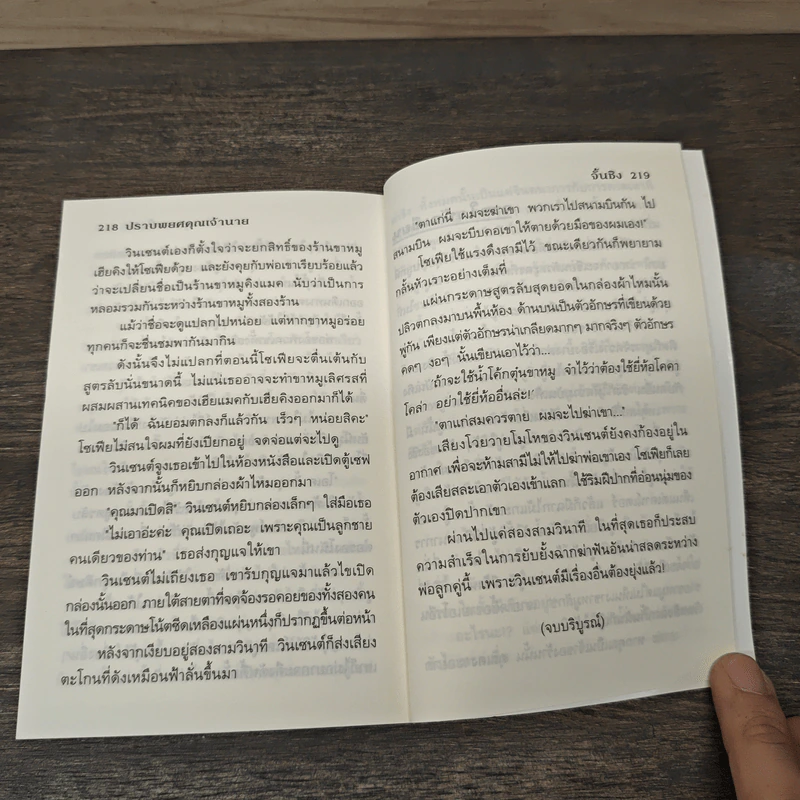 218 ปราบพยศคุณเจ้านาย
วินเซนต์เองก็ตั้งใจว่าจะยกสิทธิ์ของร้านขาหมู
เฮียคิงให้โซเฟียด้วย และยังคุยกับพ่อเขาเรียบร้อยแล้ว
ว่าจะเปลี่ยนชื่อเป็นร้านขาหมูคิงแมค นับว่าเป็นการ
หลอมรวมกันระหว่างร้านขาหมูทั้งสองร้าน
แม้ว่าชื่อจะดูแปลกไปหน่อย แต่หากขาหมูอร่อย
ทุกคนก็จะชื่นชมพากันมากิน
ดังนั้นจึงไม่แปลกที่ตอนนี้โซเฟียจะตื่นเต้นกับ
สูตรลับนั่นขนาดนี้ ไม่แน่เธออาจจะทำขาหมูเลิศรสที่
ผสมผสานเทคนิคของเฮียแมคกับเฮียคิงออกมาก็ได้
"ก็ได้ ฉันยอมตกลงก็แล้วกัน เร็วๆ หน่อยสิคะ"
โซเฟียไม่สนใจผมที่ยังเปียกอยู่ จดจ่อแต่จะไปดู
วินเซนต์จูงเธอเข้าไปในห้องหนังสือและเปิดตู้เซฟ
ออก หลังจากนั้นก็หยิบกล่องผ้าไหมออกมา
"คุณมาเปิดสิ" วินเซนต์หยิบกล่องเล็กๆ ใส่มือเธอ
"ไม่เอาอ่ะค่ะ คุณเปิดเถอะ เพราะคุณเป็นลูกชาย
คนเดียวของท่าน" เธอส่งกุญแจให้เขา
วินเซนต์ไม่เถียงเธอ เขารับกุญแจมาแล้วไขเปิด
กล่องนั้นออก ภายใต้สายตาที่จดจ้องรอคอยของทั้งสองคน
ในที่สุดกระดาษโน้ตซีดเหลืองแผ่นหนึ่งก็ปรากฏขึ้นต่อหน้า
หลังจากเงียบอยู่สองสามวินาที วินเซนต์ก็ส่งเสียง
ตะโกนที่ดังเหมือนฟ้าลั่นขึ้นมา
จิ้นซิง 219
"ตาแก่นี่ ผมจะฆ่าเขา พวกเราไปสนามบินกัน ไป
สนามบิน ผมจะบีบคอเขาให้ตายด้วยมือของผมเอง!"
โซเฟียใช้แรงดึงสามีไว้ ขณะเดียวกันก็พยายาม
กลั้นหัวเราะอย่างเต็มที่
แผ่นกระดาษสูตรลับสุดยอดในกล่องผ้าไหมนั้น
ปลิวตกลงมาบนพื้นห้อง ด้านบนเป็นตัวอักษรที่เขียนด้วย
พู่กัน เพียงแต่ตัวอักษรน่าเกลียดมากๆ มากจริงๆ ตัวอักษร
คดๆ งอๆ นั้นเขียนเอาไว้ว่า...
'ถ้าจะใช้น้ำโค้กตุ๋นขาหมู จำไว้ว่าต้องใช้ยี่ห้อโคคา
โคล่า อย่าใช้ยี่ห้ออื่นล่ะ!'
"ตาแก่สมควรตาย ผมจะไปฆ่าเขา..."
เสียงโวยวายโมโหของวินเซนต์ยังคงก้องอยู่ใน
อากาศ เพื่อจะห้ามสามีไม่ให้ไปฆ่าพ่อเขาเอง โซเฟียก็เลย
ต้องเสียสละเอาตัวเองเข้าแลก ใช้ริมฝีปากที่อ่อนนุ่มของ
ตัวเองปิดปากเขา
ผ่านไปแค่สองสามวินาที ในที่สุดเธอก็ประสบ
ความสำเร็จในการยับยั้งฉากฆ่าฟันอันน่าสลดระหว่าง
พ่อลูกคู่นี้ เพราะวินเซนต์มีเรื่องอื่นต้องยุ่งแล้ว!
(จบบริบูรณ์)